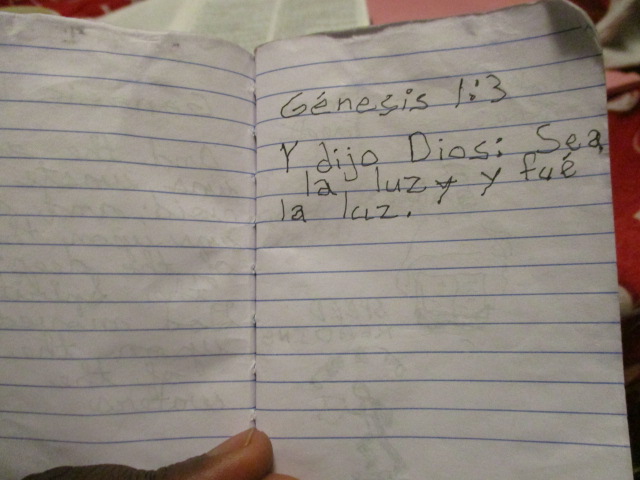 Génesis 1:3
Y dijo Dios: Sea
la luz y y fué
la luz.